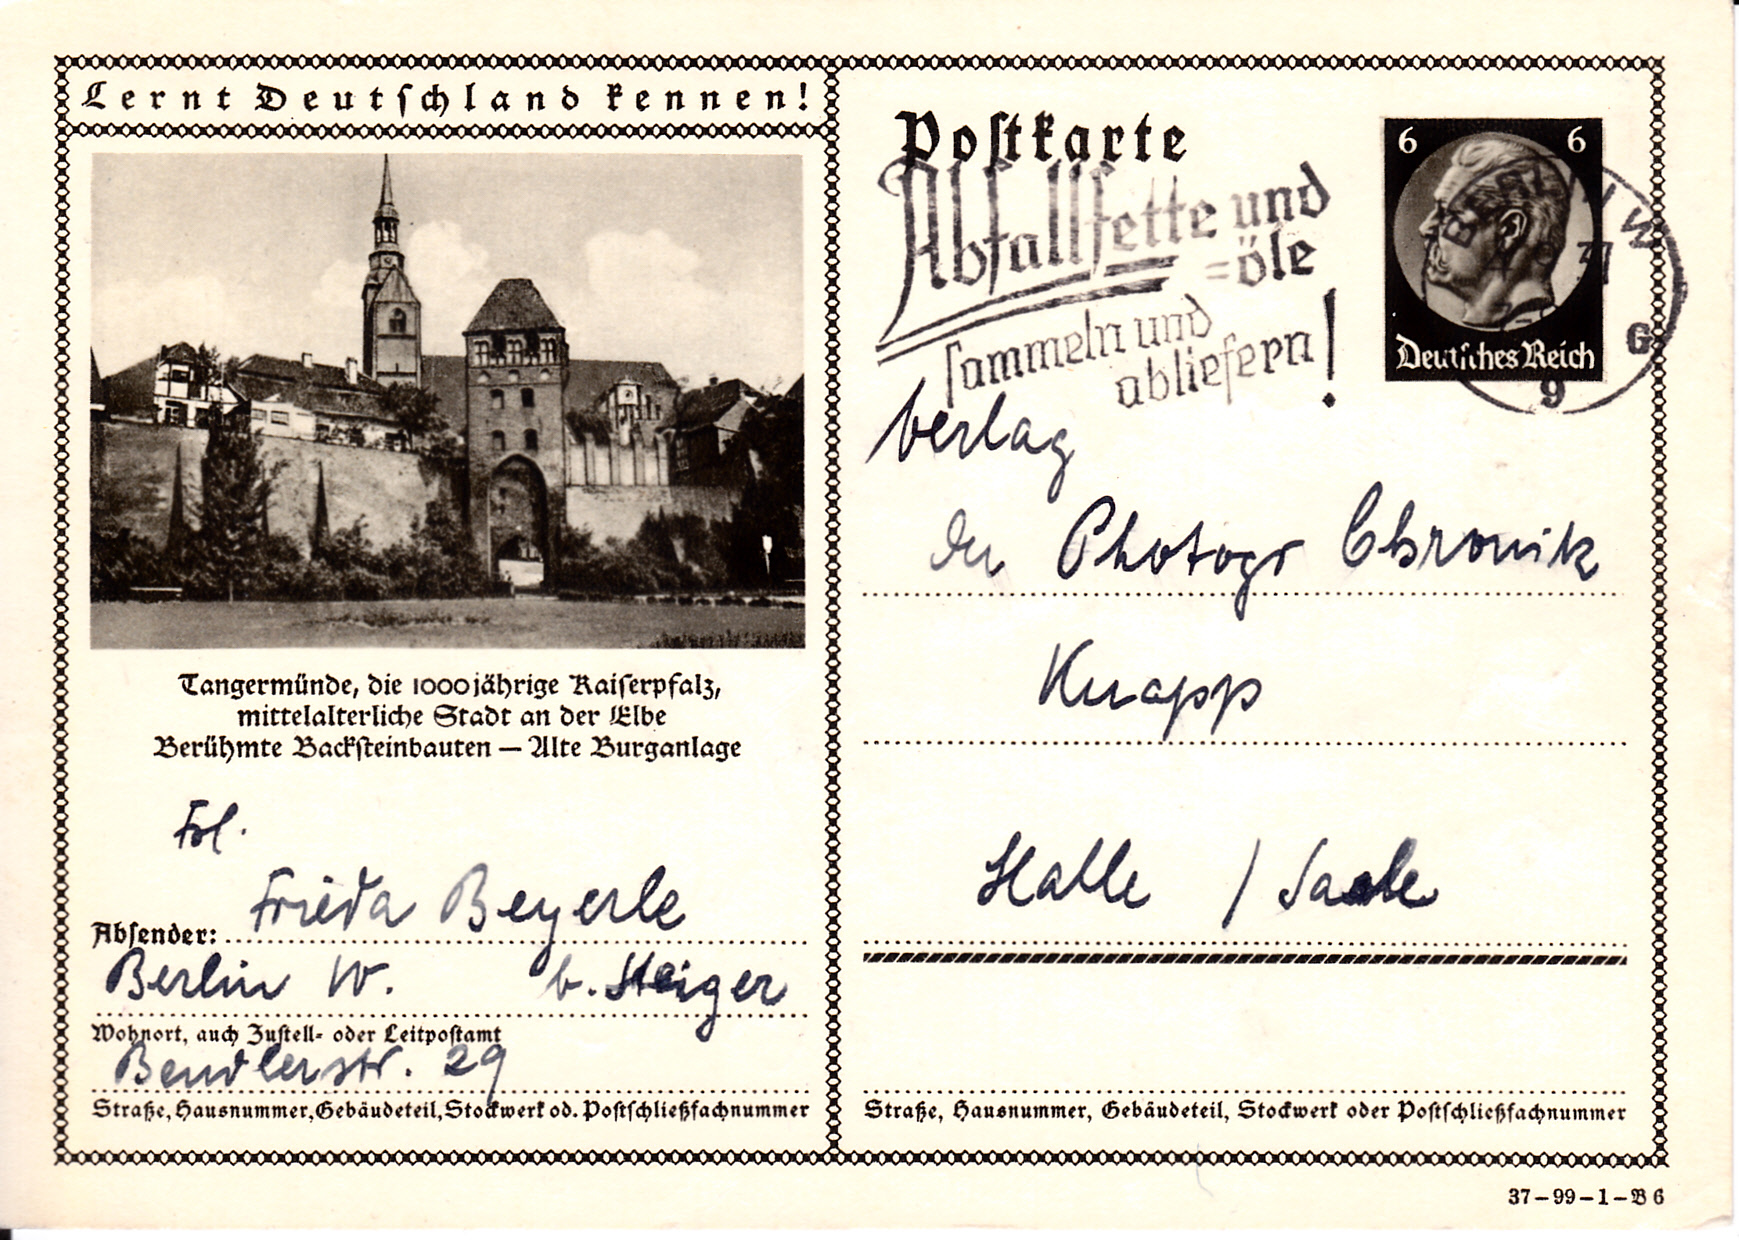 Lernt Deutschland kennen!
Tangermünde, die 1000jährige Kaiserpfalz,
mittelalterliche Stadt an der Elbe
Berühmte Backsteinbauten — Alte Burganlage
Frl.
Frieda Beyerle
Absender:
Berlin W. b. Steiger
Wohnort, auch Zustell- oder Leitpostamt
Bendlerstr. 29
Straße, Hausnummer, Gebäudeteil, Stockwerk od. Postschließfachnummer
Postkarte
Abfallfette und
=öle
sammeln und
abliefern!
6 6
Deutsches Reich
BERLIN W
G
9
Verlag
der Photogr Chronik
Knapp
Halle / Saale
Straße, Hausnummer, Gebäudeteil, Stockwerk oder Postschließfachnummer
37-99-1-B6